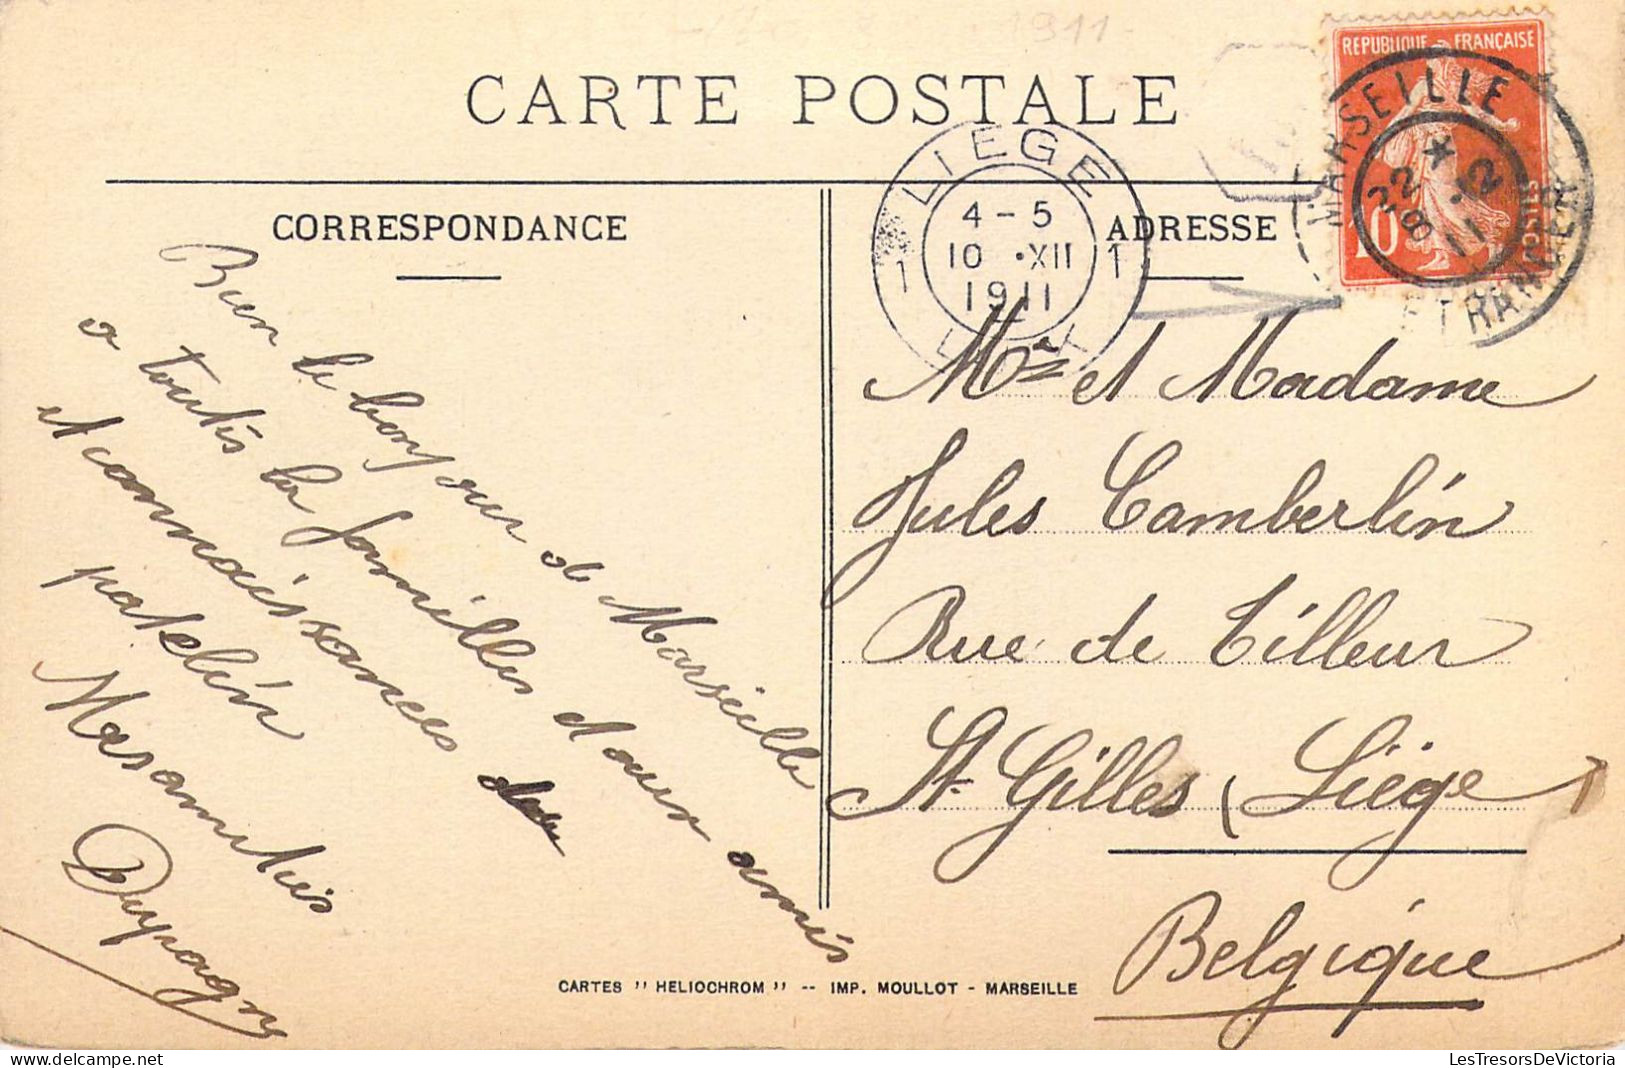 1911
CARTE POSTALE
REPUBLIQUE FRANÇAISE
10
POSTES
MARSEILLE
22 *
8 - 12
11
ETRANGER
LIEGE
1 4 - 5 1
10 • XII
1911
CORRESPONDANCE
Bien le bonjour de Marseille
a toutes la familles et aux amis
et connaissances
patelin
Mes amitiés
ADRESSE
Mr et Madame
Jules Camberlin
Rue de Tilleur
St Gilles (Liége)
Belgique
CARTES " HELIOCHROM " -- IMP. MOULLOT - MARSEILLE
LesTresorsDeVictoria